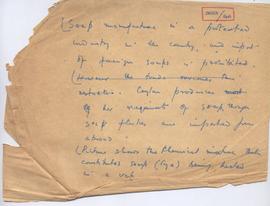 (Soap manufacture is a protected
industry in the country, and import
of foreign soaps is prohibited.
(However the funds
Ceylon produces most
of her requirement of soap though
soap flakes are imported from
abroad.
(Picture shows the Chemical mixture that
constitutes soap (lye) being heated
in a vat.